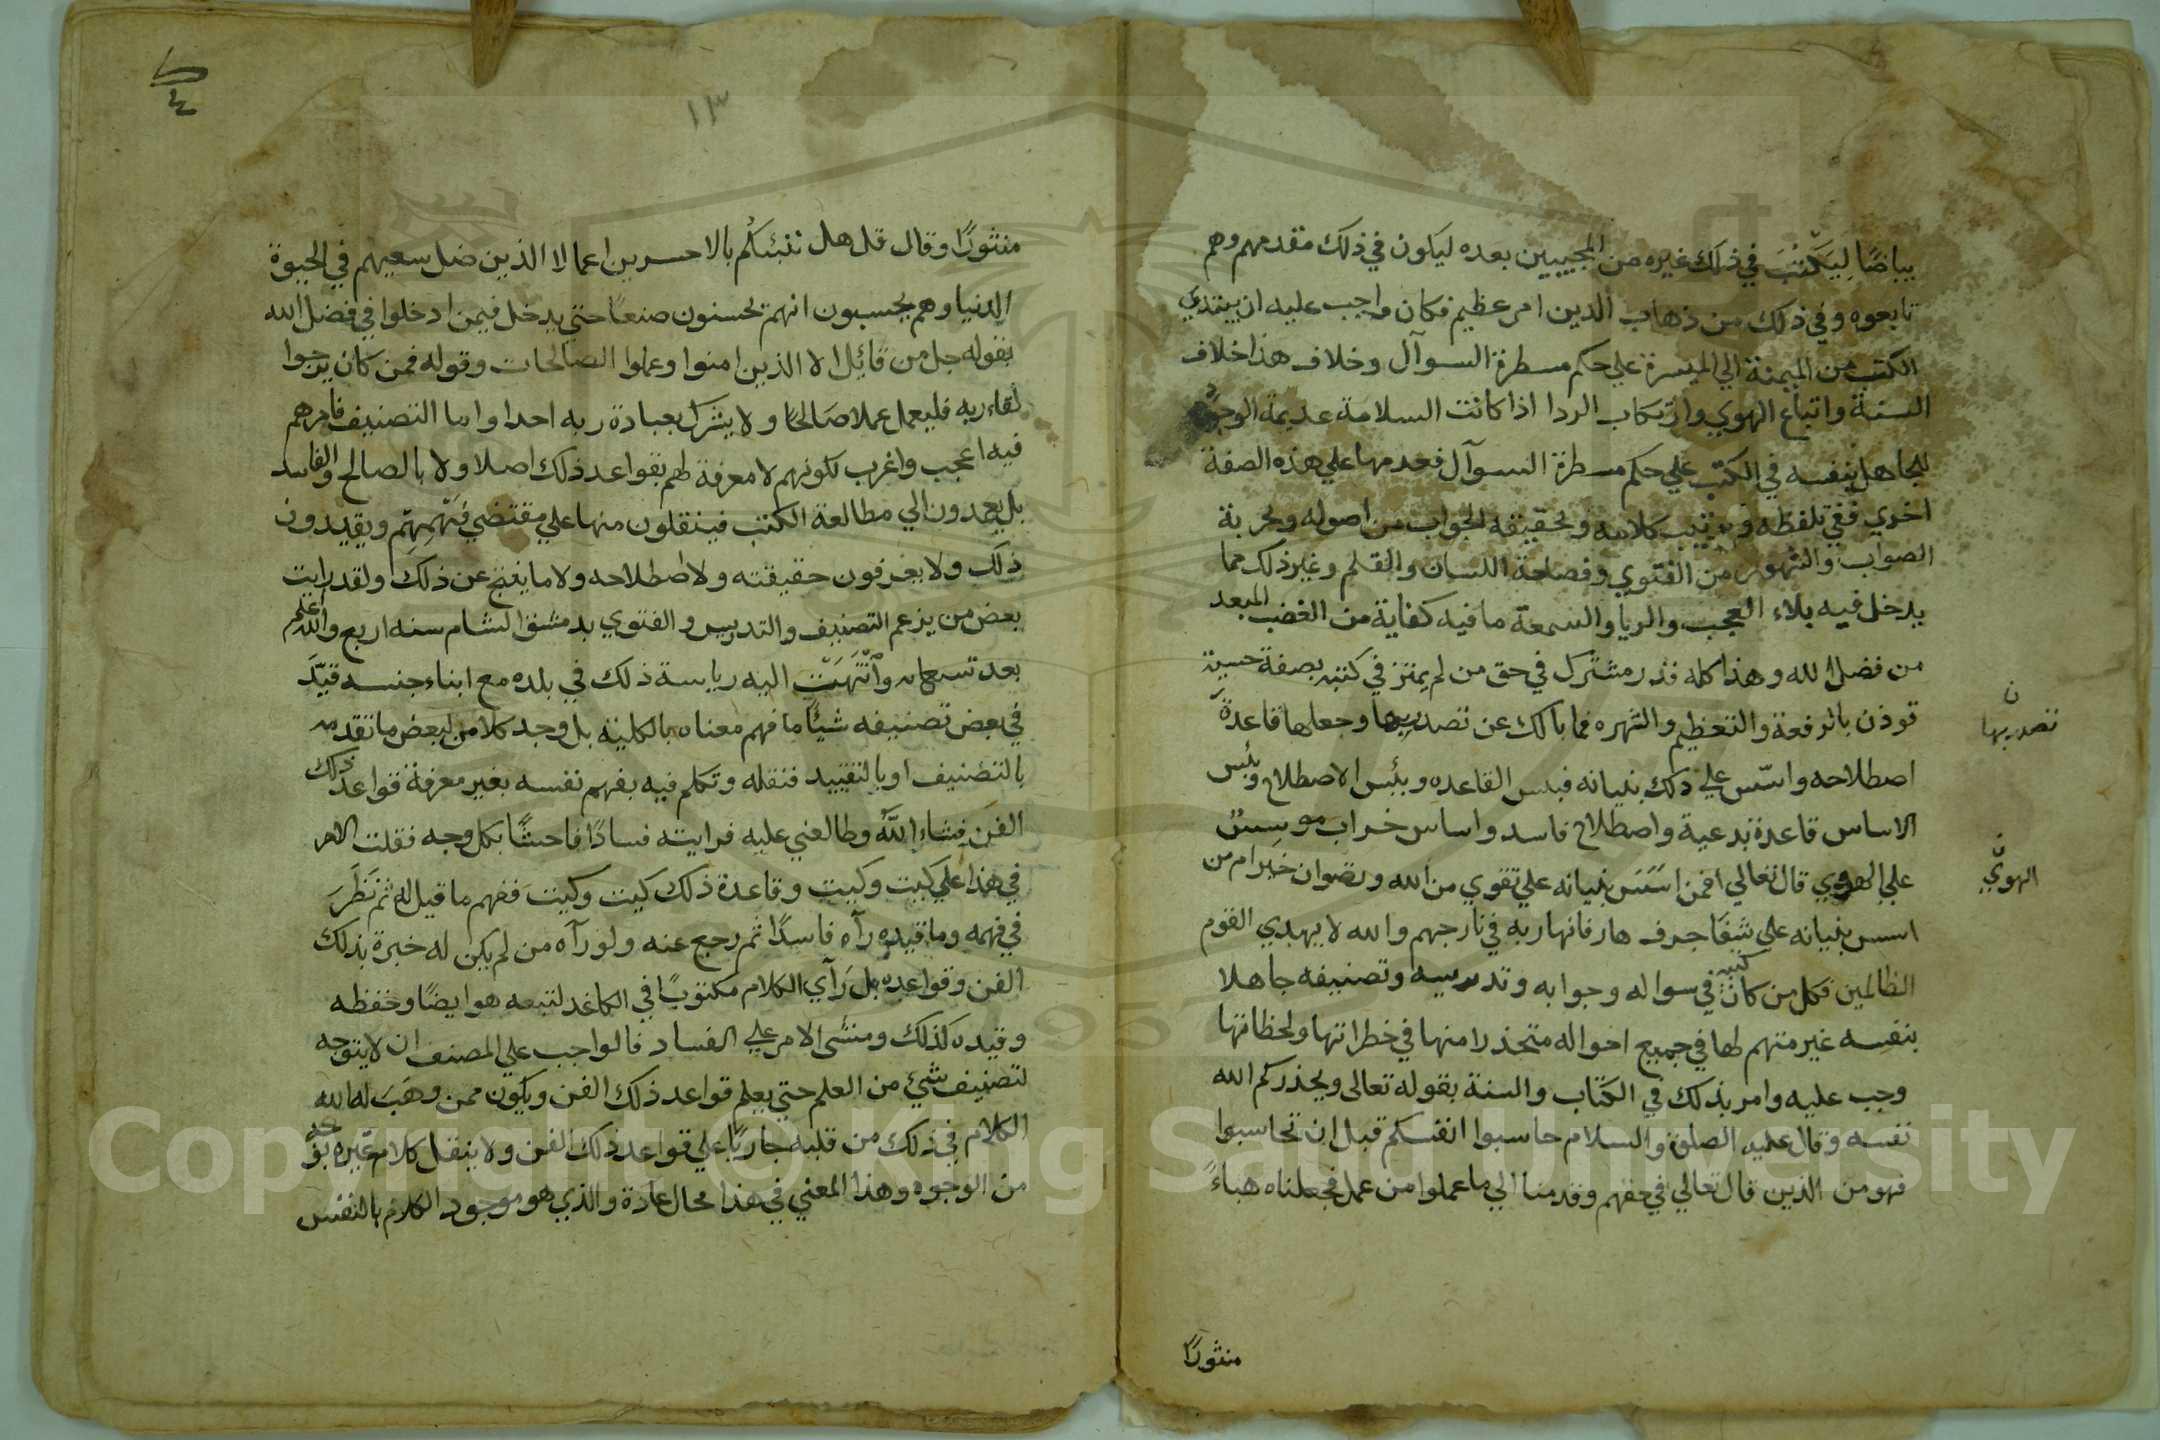 بياضًا لِيَكْتُبَ في ذلك غيره من المجيبين بعده ليكون في ذلك مقدمهم وهم
تابعوه وفي ذلك من ذهاب الدين امر عظيم فكان واجب عليه ان يبتدي
الكتب من الميمنة الي الميسرة علي حكم مسطرة السوآل وخلاف هذا خلاف
السنة واتباع الهوي وارتكاب الردا اذا كانت السلامة عديمة الوجود
للجاهل بنفسه في الكتب علي حكم مسطرة السوآل فعدمها علي هذه الصفة
اخري ففي تلفظه وترتيب كلامه وتحقيقه الجواب من اصوله وتجربة
الصواب والتهور من الفتوي وفصاحة اللسان والقلم وغير ذلك مما
يدخل فيه بلاء العجب والريا والسمعة ما فيه كفاية من الغضب المبعد
من فضل الله وهذا كله قدر مشترك في حق من لم يمتز في كتبه بصفة حسية
توذن بالرفعة والتعظيم والشهره فما بالك عن تصدر بها وجعلها قاعدة
ن
تصدر بها
اصطلاحه واسّس علي ذلك بنيانه فبئس القاعده وبئس الاصطلاح وبئس
الاساس قاعدة بدعية واصطلاح فاسد واساس خراب موسس
علي الهوي قال تعالي افمن اسَسَ بنيانه علي تقوي من الله ورضوان خير ام من
ن
الهويّ
اسس بنيانه علي شفا جرف هار فانهار به في نار جهم والله لا يهدي القوم
الظالمين فكل من كان كتبه في سواله وجوابه وتدريسه وتصنيفه جاهلا
بنفسه غير متهم لها في جميع احواله متحذرا منها في خطراتها ولحظاتها
وجب عليه وامر بذلك في الكتاب والسنة بقوله تعالى ويحذركم الله
نفسه وقال عليه الصلوة والسلام حاسبوا انفسكم قبل ان تحاسبوا
فهو من الذين قال تعالي في حقهم وقدمنا الي ما عملوا من عمل فجعلناه هباءً
منثورًا
١٣
منثورًا وقال قل هل ننبئكُم بالاخسرين اعمالا الذين ضل سعيهم في الحيوة
الدنيا وهم يحسبون انهم يحسنون صنعًا حتي يدخل فيمن ادخلوا في فضل الله
بقوله جل من قائل الا الذين امنوا وعملوا الصالحات وقوله فمن كان يرجوا
لقاء ربه فليعمل عملا صَالحًا ولا يشرك بعبادة ربه احدا واما التصنيف فامرهم
فيه اعجب واغرب لكونهم لا معرفة لهم بقواعد ذلك اصلا ولا بالصالح والفاسد
بل يعمدون الي مطالعة الكتب فينقلون منها علي مقتضي فَهْمِهِمْ ويقيدون
ذلك ولا يعرفون حقيقته ولا اصطلاحه ولا ما يفتح عن ذلك ولقد رايت
بعض من يزعم التصنيف والتدريس والفتوي بدمشق الشام سنه اربع والله اعلم
بعد تسعمايه وَانْتَهَتْ اليه رياسة ذلك في بلده مع ابناء جنسه قيَّدَ
في بعض تصنيفه شيئًا ما فهم معناه بالكلية بل وجد كلاما لبعض ما تقدمه
بالتصنيف او بالتقييد فنقله وتكلم فيه بفهم نفسه بغير معرفة قواعد ذلك
الفن فشاء اللَّه وطالعني عليه فرايته فسادًا فاحشًا بكل وجه فقلت الامر
في هذا علي كيت وكيت وقاعدة ذلك كيت وكيت ففهم ما قيل له ثم نَظَرَ
في فهمه وما قيده رآه فاسدًا ثم رجع عنه ولو رآه من لم يكن له خبرة بذلك
الفن وقواعده بل رَآي الكلام مكتوبًا في الكاغد لتبعه هو ايضًا وحفظه
وقيده كذلك ومشى الامر علي الفساد فالواجب علي المصنف ان لا يتوجه
لتصنيف شيئ من العلم حتي يعلم قواعد ذلك الفن ويكون ممن وهَبَ له الله
الكلام في ذلك من قلبه جاريًا علي قواعد ذلك الفن ولا ينقل كلام غيره بوجه
من الوجوه وهذا المعني في هذا محال عادة والذي هو موجود الكلام بالنفس
Copyright © King Saud University
1957